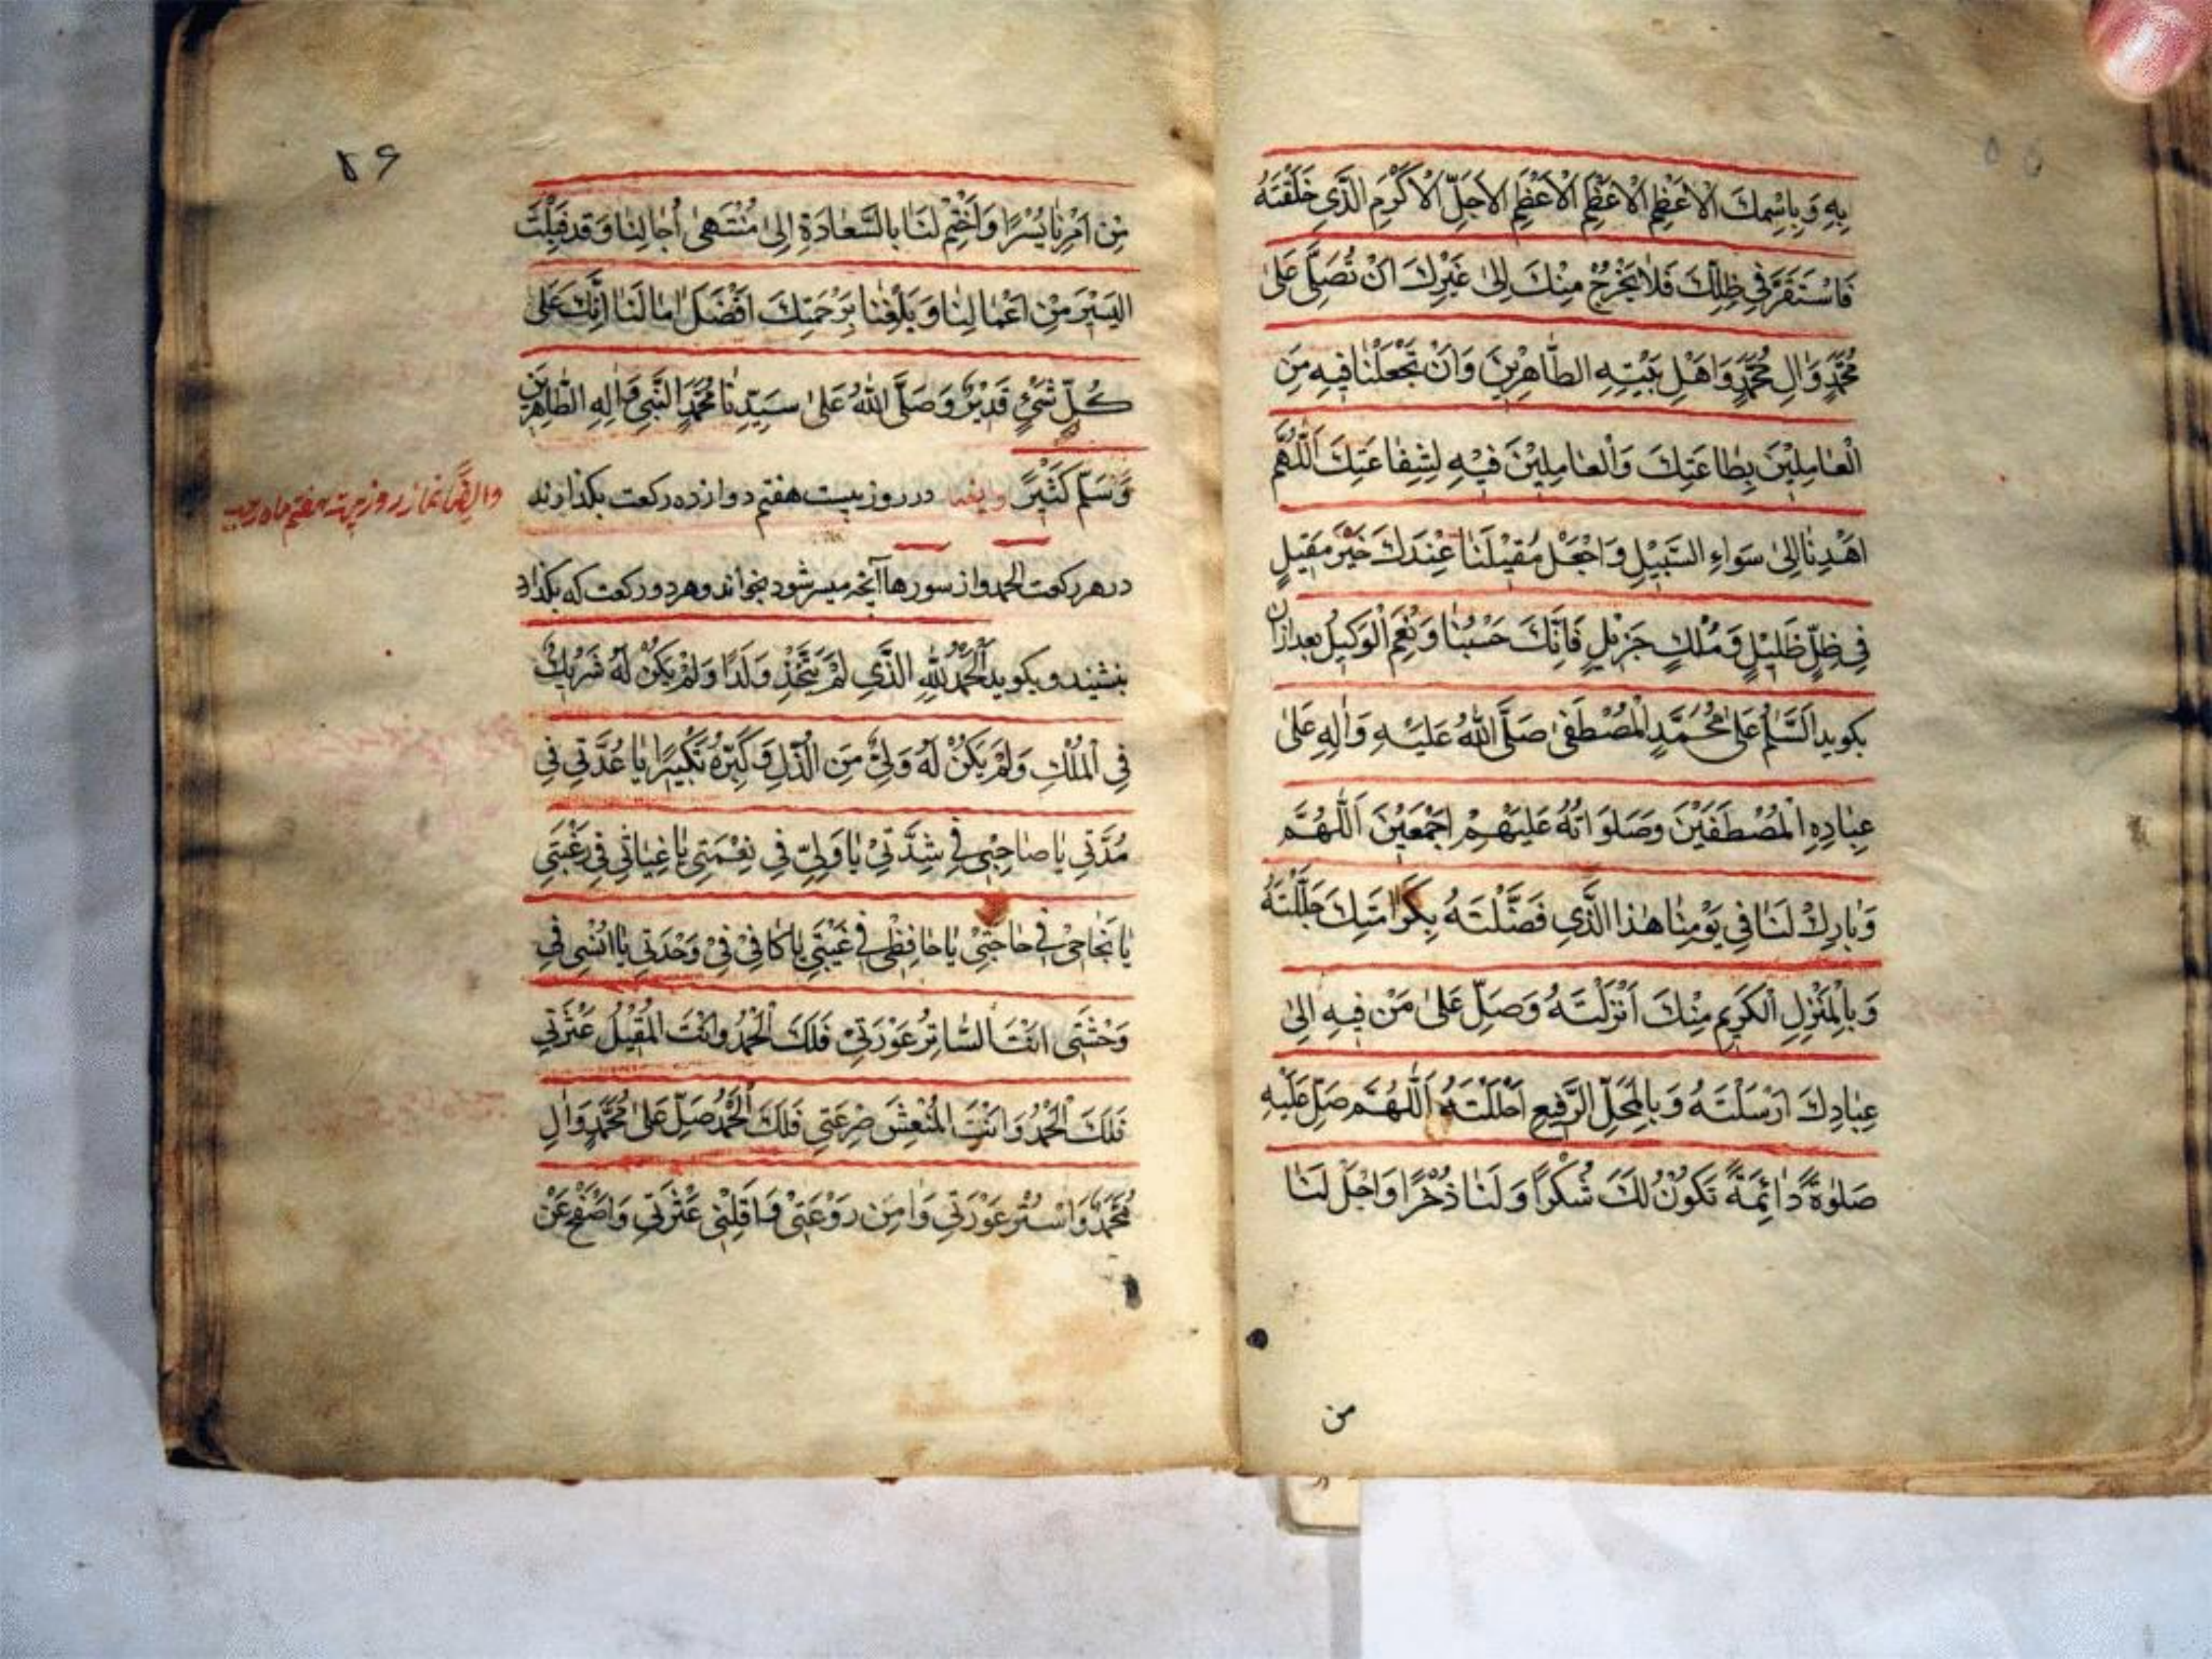 بِهِ وَبِاِسْمِكَ الْاَعْظَمِ الْاَعْظَمِ الْاَعْظَمِ الْاَجَلِّ الْاَكْرَمِ الَّذِي خَلَقْتَهُ
فَاسْتَقَرَّ فِي ظِلِّكَ فَلَا يَخْرُجُ مِنْكَ اِلىٰ غَيْرِكَ اَنْ تُصَلِّيَ عَلىٰ
مُحَمَّدٍ وَاٰلِ مُحَمَّدٍ وَاَهْلِ بَيْتِهِ الطَّاهِرِيْنَ وَاَنْ تَجْعَلَنَا فِيهِ مِنَ
الْعَامِلِيْنَ بِطَاعَتِكَ وَالْعَامِلِيْنَ فِيْهِ لِشِفَاعَتِكَ اَللّٰهُمَّ
اهْدِنَا اِلىٰ سَوَاءِ السَّبِيْلِ وَاجْعَلْ مَقِيْلَنَا عِنْدَكَ خَيْرَ مَقِيْلٍ
فِي ظِلٍّ ظَلِيْلٍ وَمُلْكٍ جَزِيْلٍ فَاِنَّكَ حَسْبُنَا وَنِعْمَ الْوَكِيْلُ بعد ازان
بكويد اَلسَّلٰمُ عَلىٰ مُحَمَّدٍ الْمُصْطَفىٰ صَلَّى اللّٰهُ عَلَيْهِ وَاٰلِهِ عَلىٰ
عِبَادِهِ الْمُصْطَفَيْنَ وَصَلَوَاتُهُ عَلَيْهِمْ اَجْمَعِيْنَ اَللّٰهُمَّ
وَبَارِكْ لَنَا فِي يَوْمِنَا هٰذَا الَّذِي فَضَّلْتَهُ بِكَرَامَتِكَ جَلَّلْتَهُ
وَبِالْمَنْزِلِ الْكَرِيمِ مِنْكَ اَنْزَلْتَهُ وَصَلِّ عَلىٰ مَنْ فِيهِ اِلىٰ
عِبَادِكَ اَرْسَلْتَهُ وَبِالْمَحَلِّ الرَّفِيعِ اَحْلَلْتَهُ اَللّٰهُمَّ صَلِّ عَلَيْهِ
صَلوٰةً دَائِمَةً تَكُوْنُ لَكَ شُكْرًا وَلَنَا ذُخْرًا وَاجْعَلْ لَنَا
من
۵۶
مِنْ اَمْرِنَا يُسْرًا وَاَخْتِمْ لَنَا بِالسَّعَادَةِ اِلىٰ مُنْتَهىٰ اٰجَالِنَا وَقَد قَبِلْتَ
الْيَسِيْرَ مِنْ اَعْمَالِنَا وَبَلَّغْنَا بِرَحْمَتِكَ اَفْضَلَ اٰمَالِنَا اِنَّكَ عَلىٰ
كُلِّ شَيْءٍ قَدِيْرٌ وَصَلَّى اللّٰهُ عَلىٰ سَيِّدِنَا مُحَمَّدٍ النَّبِيِّ وَاٰلِهِ الطَّاهِرِيْنَ
وَسَلَّمَ كَثِيْرً وايضا در روز بيست هفتم دوازده ركعت بكذارند
وايضاً نماز روز بيست هفتم ماه رجب
در هر ركعت الحمد و از سورها آنچه ميسر شود بخواند و هر دو ركعت كه بكذارد
بنشيند و بكويد اَلْحَمْدُ لِلّٰهِ الَّذِي لَمْ يَتَّخِذْ وَلَدًا وَلَمْ يَكُنْ لَهُ شَرِيْكٌ
فِي الْمُلْكِ وَلَمْ يَكُنْ لَهُ وَلِيٌّ مِنَ الذُّلِّ وَكَبِّرْهُ تَكْبِيْرًا يَا عُدَّتِي فِي
مُدَّتِي يَا صَاحِبِي فِي شِدَّتِيْ يَا وَلِيِّ فِي نِعْمَتِي يَا غِيَاثِي فِي رَغْبَتِي
يَا نَجَاحِيْ فِي حَاجَتِيْ يَا حَافِظِيْ فِي غَيْبَتِي يَا كَافِيْ فِيْ وَحْدَتِي يَا اُنْسِي فِي
وَحْشَتِي اَنْتَ السَّاتِرُ عَوْرَتِيْ فَلَكَ الْحَمْدُ وَاَنْتَ الْمُقِيْلُ عَثْرَتِي
فَلَكَ الْحَمْدُ وَاَنْتَ الْمُنْعِشُ صَرْعَتِي فَلَكَ الْحَمْدُ صَلِّ عَلىٰ مُحَمَّدٍ وَاٰلِ
مُحَمَّدٍ وَاسْتُرْ عَوْرَتِي وَاٰمِنْ رَوْعَتِيْ وَاَقِلْنِي عَثْرَتِي وَاصْفَحْ عَنْ